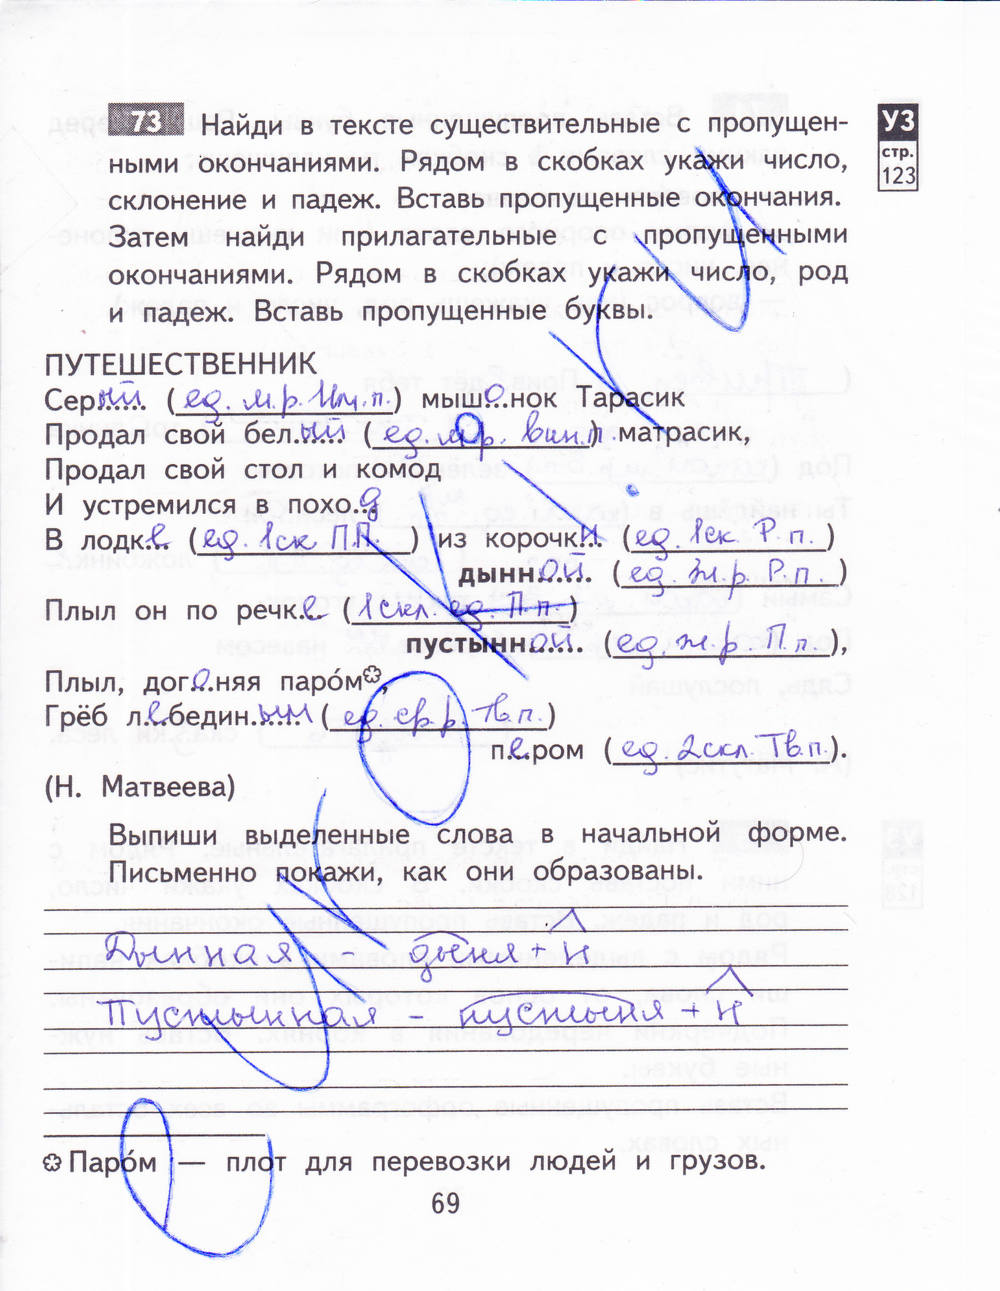 73 Найди в тексте существительные с пропущен-
ными окончаниями. Рядом в скобках укажи число,
склонение и падеж. Вставь пропущенные окончания.
Затем найди прилагательные с пропущенными
окончаниями. Рядом в скобках укажи число, род
и падеж. Вставь пропущенные буквы.
УЗ
стр.
123
ПУТЕШЕСТВЕННИК
Серый (ед. м.р. Им.п.) мышонок Тарасик
Продал свой белый (ед. м.р. вин.п.) матрасик,
Продал свой стол и комод
И устремился в поход
В лодке (ед. 1ск П.п.) из корочки (ед. 1ск. Р.п.)
дынной. (ед. ж.р. Р.п.)
Плыл он по речке (1скл. ед. П.п.)
пустынной. (ед. ж.р. П.п.),
Плыл, догоняя паро́м,
Грёб лебединым (ед. ср.р. Тв.п.)
пером (ед. 2скл. Тв.п.).
(Н. Матвеева)
Выпиши выделенные слова в начальной форме.
Письменно покажи, как они образованы.
Дынная дыня + н
Пустынная - пустыня + н
Паро́м — плот для перевозки людей и грузов.
69